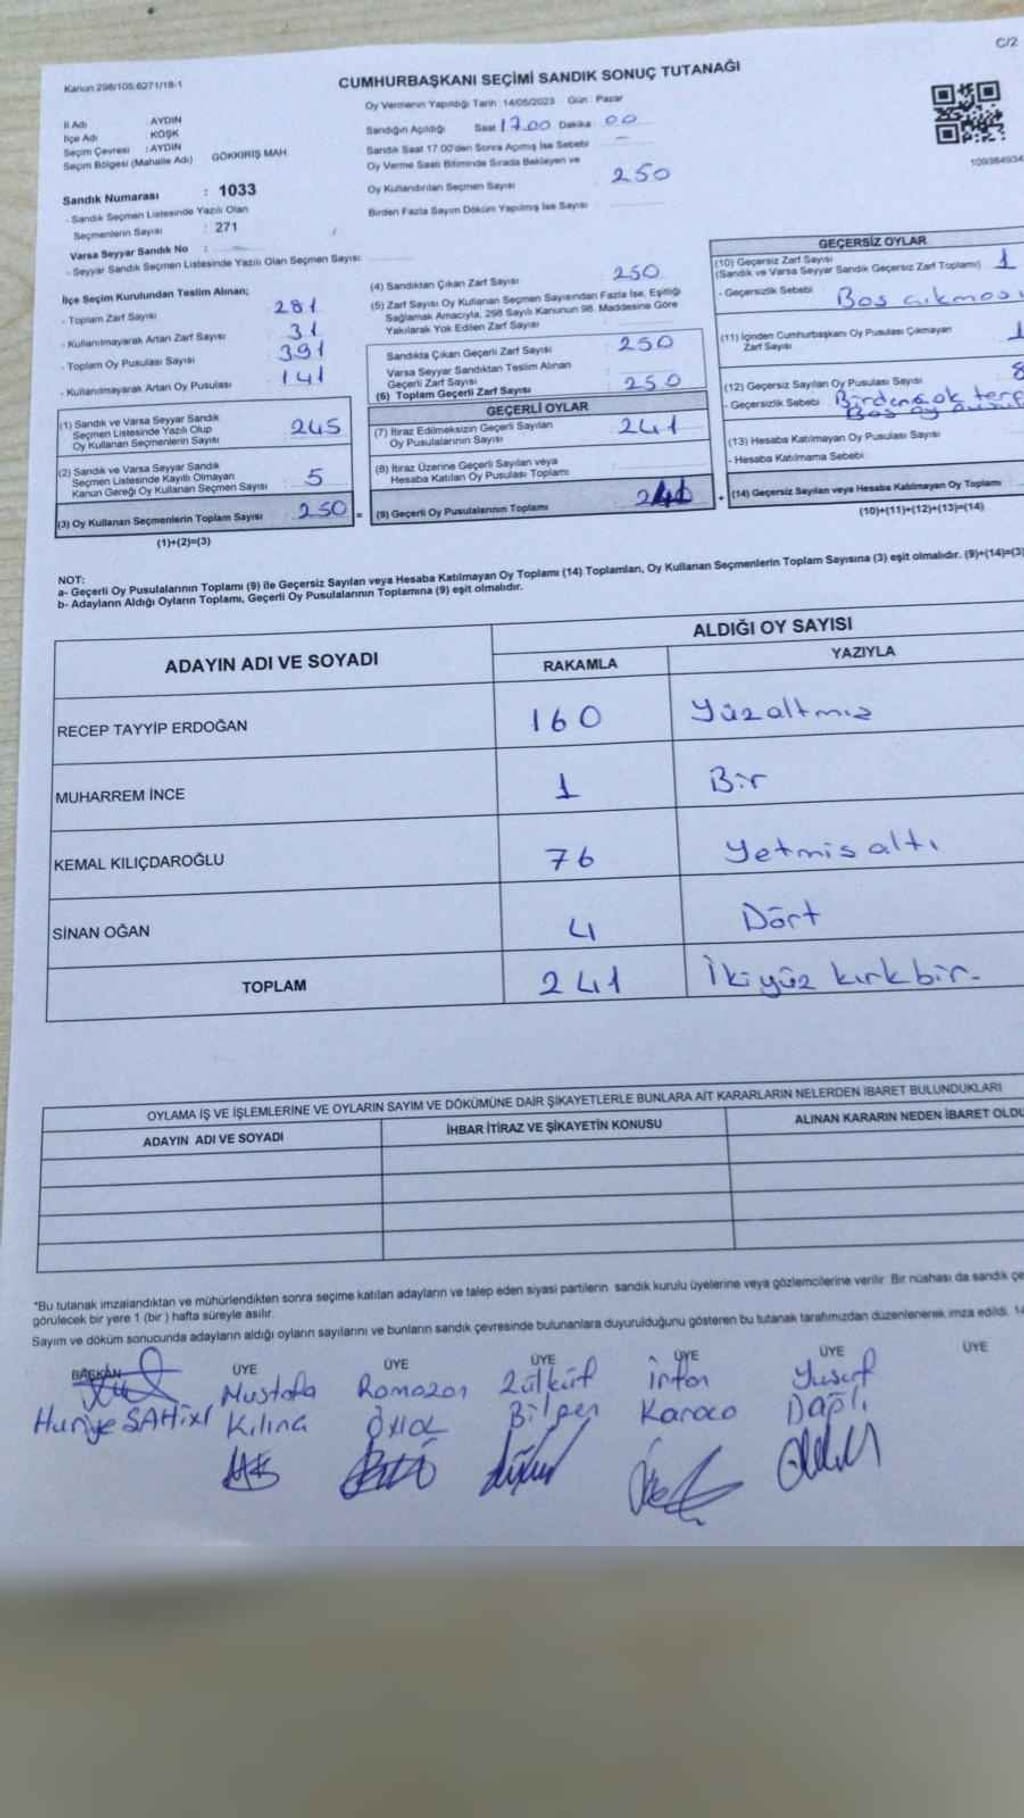 C/2
Kanun 298/105.6271/18-1
CUMHURBAŞKANI SEÇİMİ SANDIK SONUÇ TUTANAĞI
Oy Vermenin Yapıldığı Tarih: 14/05/2023 Gün: Pazar
İl Adı AYDIN
İlçe Adı KÖŞK
Seçim Çevresi : AYDIN
Seçim Bölgesi (Mahalle Adı) GÖKKİRİŞ MAH
Sandığın Açıldığı Saat 17.00 Dakika 00
Sandık Saat 17.00'den Sonra Açılmış İse Sebebi —
Oy Verme Saati Bitiminde Sırada Bekleyen ve
Oy Kullandırılan Seçmen Sayısı 250
Birden Fazla Sayım Döküm Yapılmış İse Sayısı
Sandık Numarası : 1033
- Sandık Seçmen Listesinde Yazılı Olan
Seçmenlerin Sayısı : 271
Varsa Seyyar Sandık No :
- Seyyar Sandık Seçmen Listesinde Yazılı Olan Seçmen Sayısı
İlçe Seçim Kurulundan Teslim Alınan;
- Toplam Zarf Sayısı 281
- Kullanılmayarak Artan Zarf Sayısı 31
- Toplam Oy Pusulası Sayısı 391
- Kullanılmayarak Artan Oy Pusulası 141
(1) Sandık ve Varsa Seyyar Sandık
Seçmen Listesinde Yazılı Olup
Oy Kullanan Seçmenlerin Sayısı 245
(2) Sandık ve Varsa Seyyar Sandık
Seçmen Listesinde Kayıtlı Olmayan
Kanun Gereği Oy Kullanan Seçmen Sayısı 5
(3) Oy Kullanan Seçmenlerin Toplam Sayısı 250 =
(1)+(2)=(3)
(4) Sandıktan Çıkan Zarf Sayısı 250
(5) Zarf Sayısı Oy Kullanan Seçmen Sayısından Fazla İse, Eşitliği
Sağlamak Amacıyla, 298 Sayılı Kanunun 98. Maddesine Göre
Yakılarak Yok Edilen Zarf Sayısı
Sandıkta Çıkan Geçerli Zarf Sayısı 250
Varsa Seyyar Sandıktan Teslim Alınan
Geçerli Zarf Sayısı
(6) Toplam Geçerli Zarf Sayısı 250
GEÇERLİ OYLAR
(7) İtiraz Edilmeksizin Geçerli Sayılan
Oy Pusulalarının Sayısı 241
(8) İtiraz Üzerine Geçerli Sayılan veya
Hesaba Katılan Oy Pusulası Toplamı
(9) Geçerli Oy Pusulalarının Toplamı +
GEÇERSİZ OYLAR
(10) Geçersiz Zarf Sayısı
(Sandık ve Varsa Seyyar Sandık Geçersiz Zarf Toplamı) 1
- Geçersizlik Sebebi Boş çıkması
(11) İçinden Cumhurbaşkanı Oy Pusulası Çıkmayan
Zarf Sayısı 1
(12) Geçersiz Sayılan Oy Pusulası Sayısı 8
- Geçersizlik Sebebi Birden çok
(13) Hesaba Katılmayan Oy Pusulası Sayısı
- Hesaba Katılmama Sebebi
(14) Geçersiz Sayılan veya Hesaba Katılmayan Oy Toplamı
(10)+(11)+(12)+(13)=(14)
NOT:
a- Geçerli Oy Pusulalarının Toplamı (9) ile Geçersiz Sayılan veya Hesaba Katılmayan Oy Toplamı (14) Toplamları, Oy Kullanan Seçmenlerin Toplam Sayısına (3) eşit olmalıdır. (9)+(14)=(3)
b- Adayların Aldığı Oyların Toplamı, Geçerli Oy Pusulalarının Toplamına (9) eşit olmalıdır.
ADAYIN ADI VE SOYADI
ALDIĞI OY SAYISI
RAKAMLA YAZIYLA
RECEP TAYYİP ERDOĞAN 160 Yüzaltmız
MUHARREM İNCE 1 Bir
KEMAL KILIÇDAROĞLU 76 Yetmis altı
SİNAN OĞAN 4 Dört
TOPLAM 241 İkiyüz kırkbir.
OYLAMA İŞ VE İŞLEMLERİNE VE OYLARIN SAYIM VE DÖKÜMÜNE DAİR ŞİKAYETLERLE BUNLARA AİT KARARLARIN NELERDEN İBARET BULUNDUKLARI
ADAYIN ADI VE SOYADI İHBAR İTİRAZ VE ŞİKAYETİN KONUSU ALINAN KARARIN NEDEN İBARET OLDU
*Bu tutanak imzalandıktan ve mühürlendikten sonra seçime katılan adayların ve talep eden siyasi partilerin sandık kurulu üyelerine veya gözlemcilerine verilir. Bir nüshası da sandık çe
görülecek bir yere 1 (bir) hafta süreyle asılır.
Sayım ve döküm sonucunda adayların aldığı oyların sayılarını ve bunların sandık çevresinde bulunanlara duyurulduğunu gösteren bu tutanak tarafımızdan düzenlenerek imza edildi. 14
BAŞKAN ÜYE ÜYE ÜYE ÜYE ÜYE ÜYE
Mustafa Ramazan Zülküf İrfan Yusuf
Huriye ŞAHİN Kılınç Bilgen Karaca Dağlı